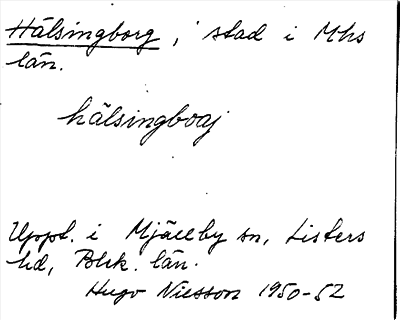 Hälsingborg, stad i Mhs
län.
hälsingboaj
Uppt. i Mjällby sn, Listers
hd, Blek. län.
Hugo Nilsson 1950-52